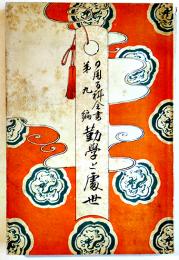 日用百科全書
第九編
勤学と處世